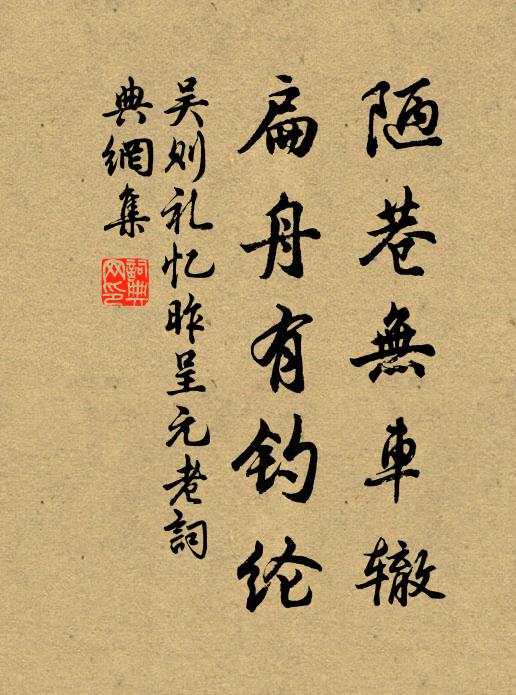 陋巷無車辙
扁舟有钓纶
吴则礼忆昨呈元老詞
典網集
詞典网印